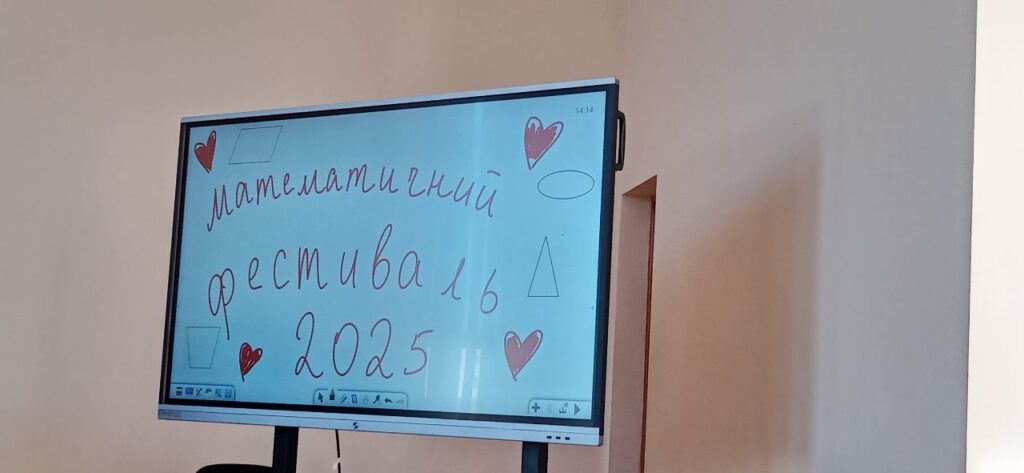 14:14
математичний
фестиваль
2025